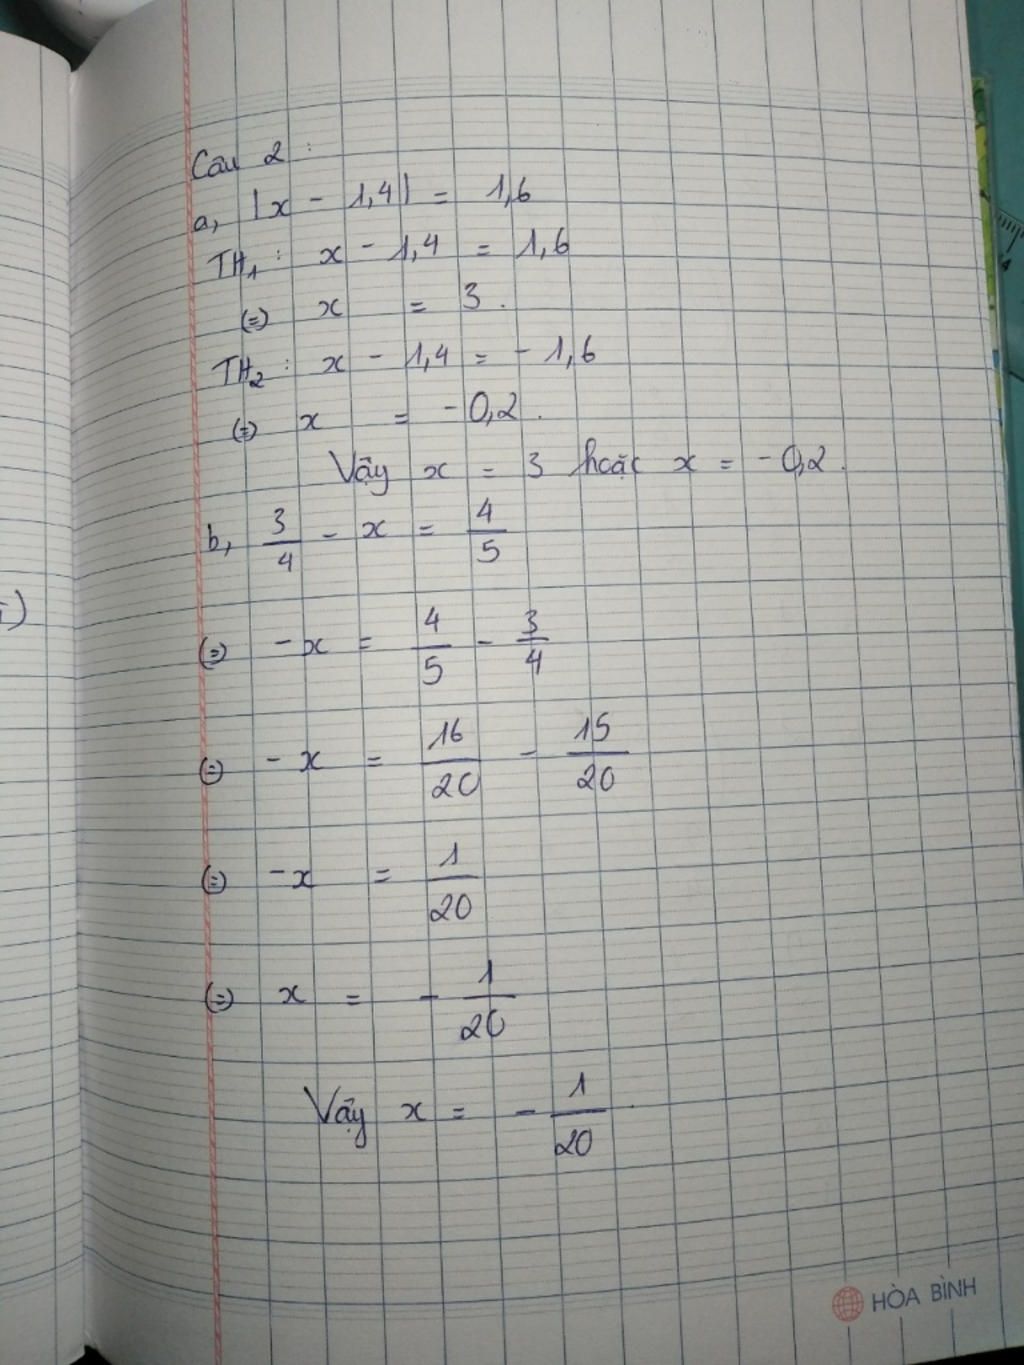 Câu 2 :
a, |x - 1,4| = 1,6
TH₁ : x - 1,4 = 1,6
(=) x = 3 .
TH₂ : x - 1,4 = - 1,6
(=) x = - 0,2 .
Vậy x = 3 hoặc x = - 0,2 .
b, 3/4 - x = 4/5
(=) - x = 4/5 - 3/4
(=) - x = 16/20 - 15/20
(=) - x = 1/20
(=) x = - 1/20
Vậy x = - 1/20 .
HÒA BÌNH